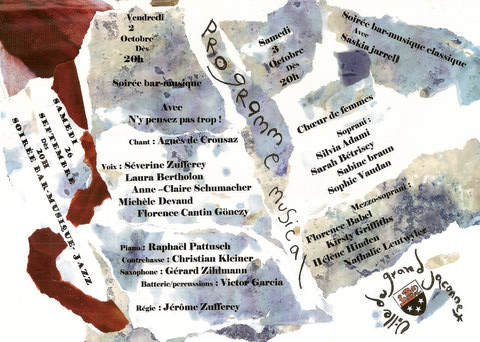 SAMEDI 26
SEPTEMBRE
Dès
20H
SOIREE BAR-MUSIQUE JAZZ
Vendredi
2
Octobre
Dès
20h
Soirée bar-musique
Avec
N'y pensez pas trop !
Chant : Agnès de Crousaz
Voix : Séverine Zufferey
Laura Bertholon
Anne –Claire Schumacher
Michèle Devaud
Florence Cantin Gönczy
Piano : Raphaël Pattusch
Contrebasse : Christian Kleiner
Saxophone : Gérard Zihlmann
Batterie/percussions : Victor Garcia
Régie : Jérôme Zufferey
Programme musical
Samedi
3
Octobre
Dès
20h
Soirée bar-musique classique
Avec
Saskia jarrell
Chœur de femmes
Soprani :
Silvia Adami
Sarah Bétrisey
Sabine braun
Sophie Vaudan
Mezzo-soprani :
Florence Babel
Kirsty Griffiths
Hélène Hinden
Nathalie Leutwyler
Ville du grand Saconnex